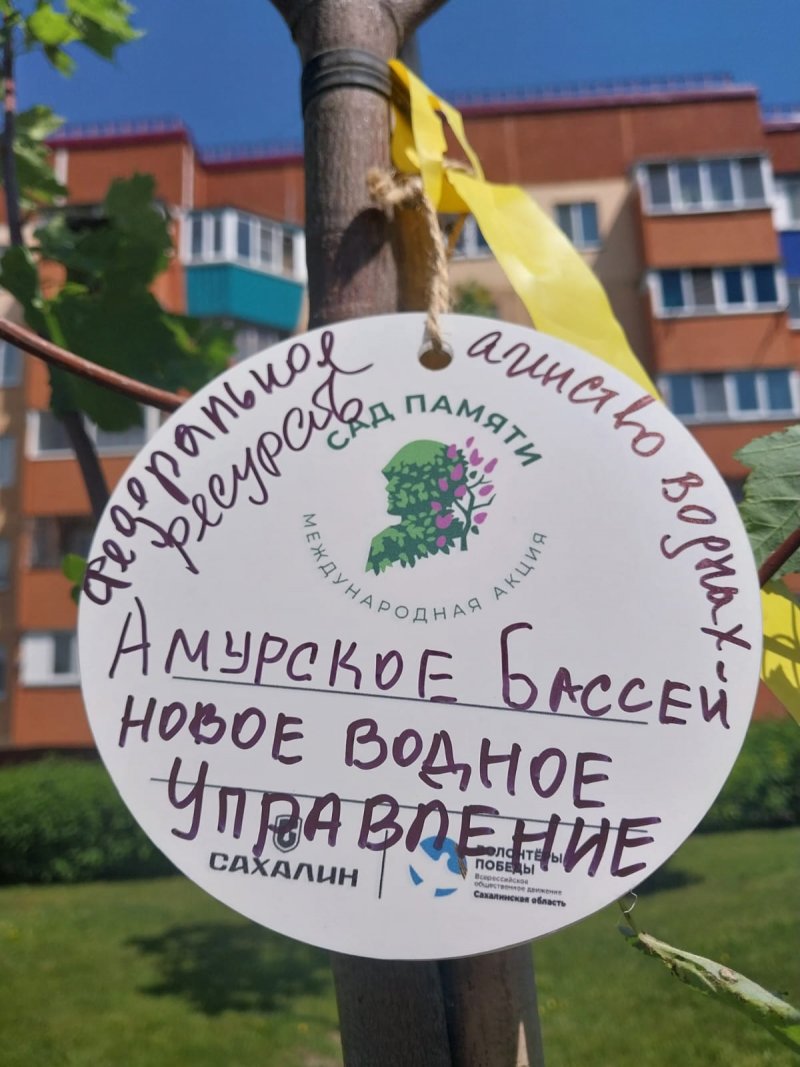 Федеральное агинство водных
ресурсов
САД ПАМЯТИ
МЕЖДУНАРОДНАЯ АКЦИЯ
АМУРСКОЕ БАССЕЙ
НОВОЕ ВОДНОЕ
УПРАВЛЕНИЕ
САХАЛИН
ВОЛОНТЁРЫ
ПОБЕДЫ
Всероссийское
общественное движение
Сахалинская область